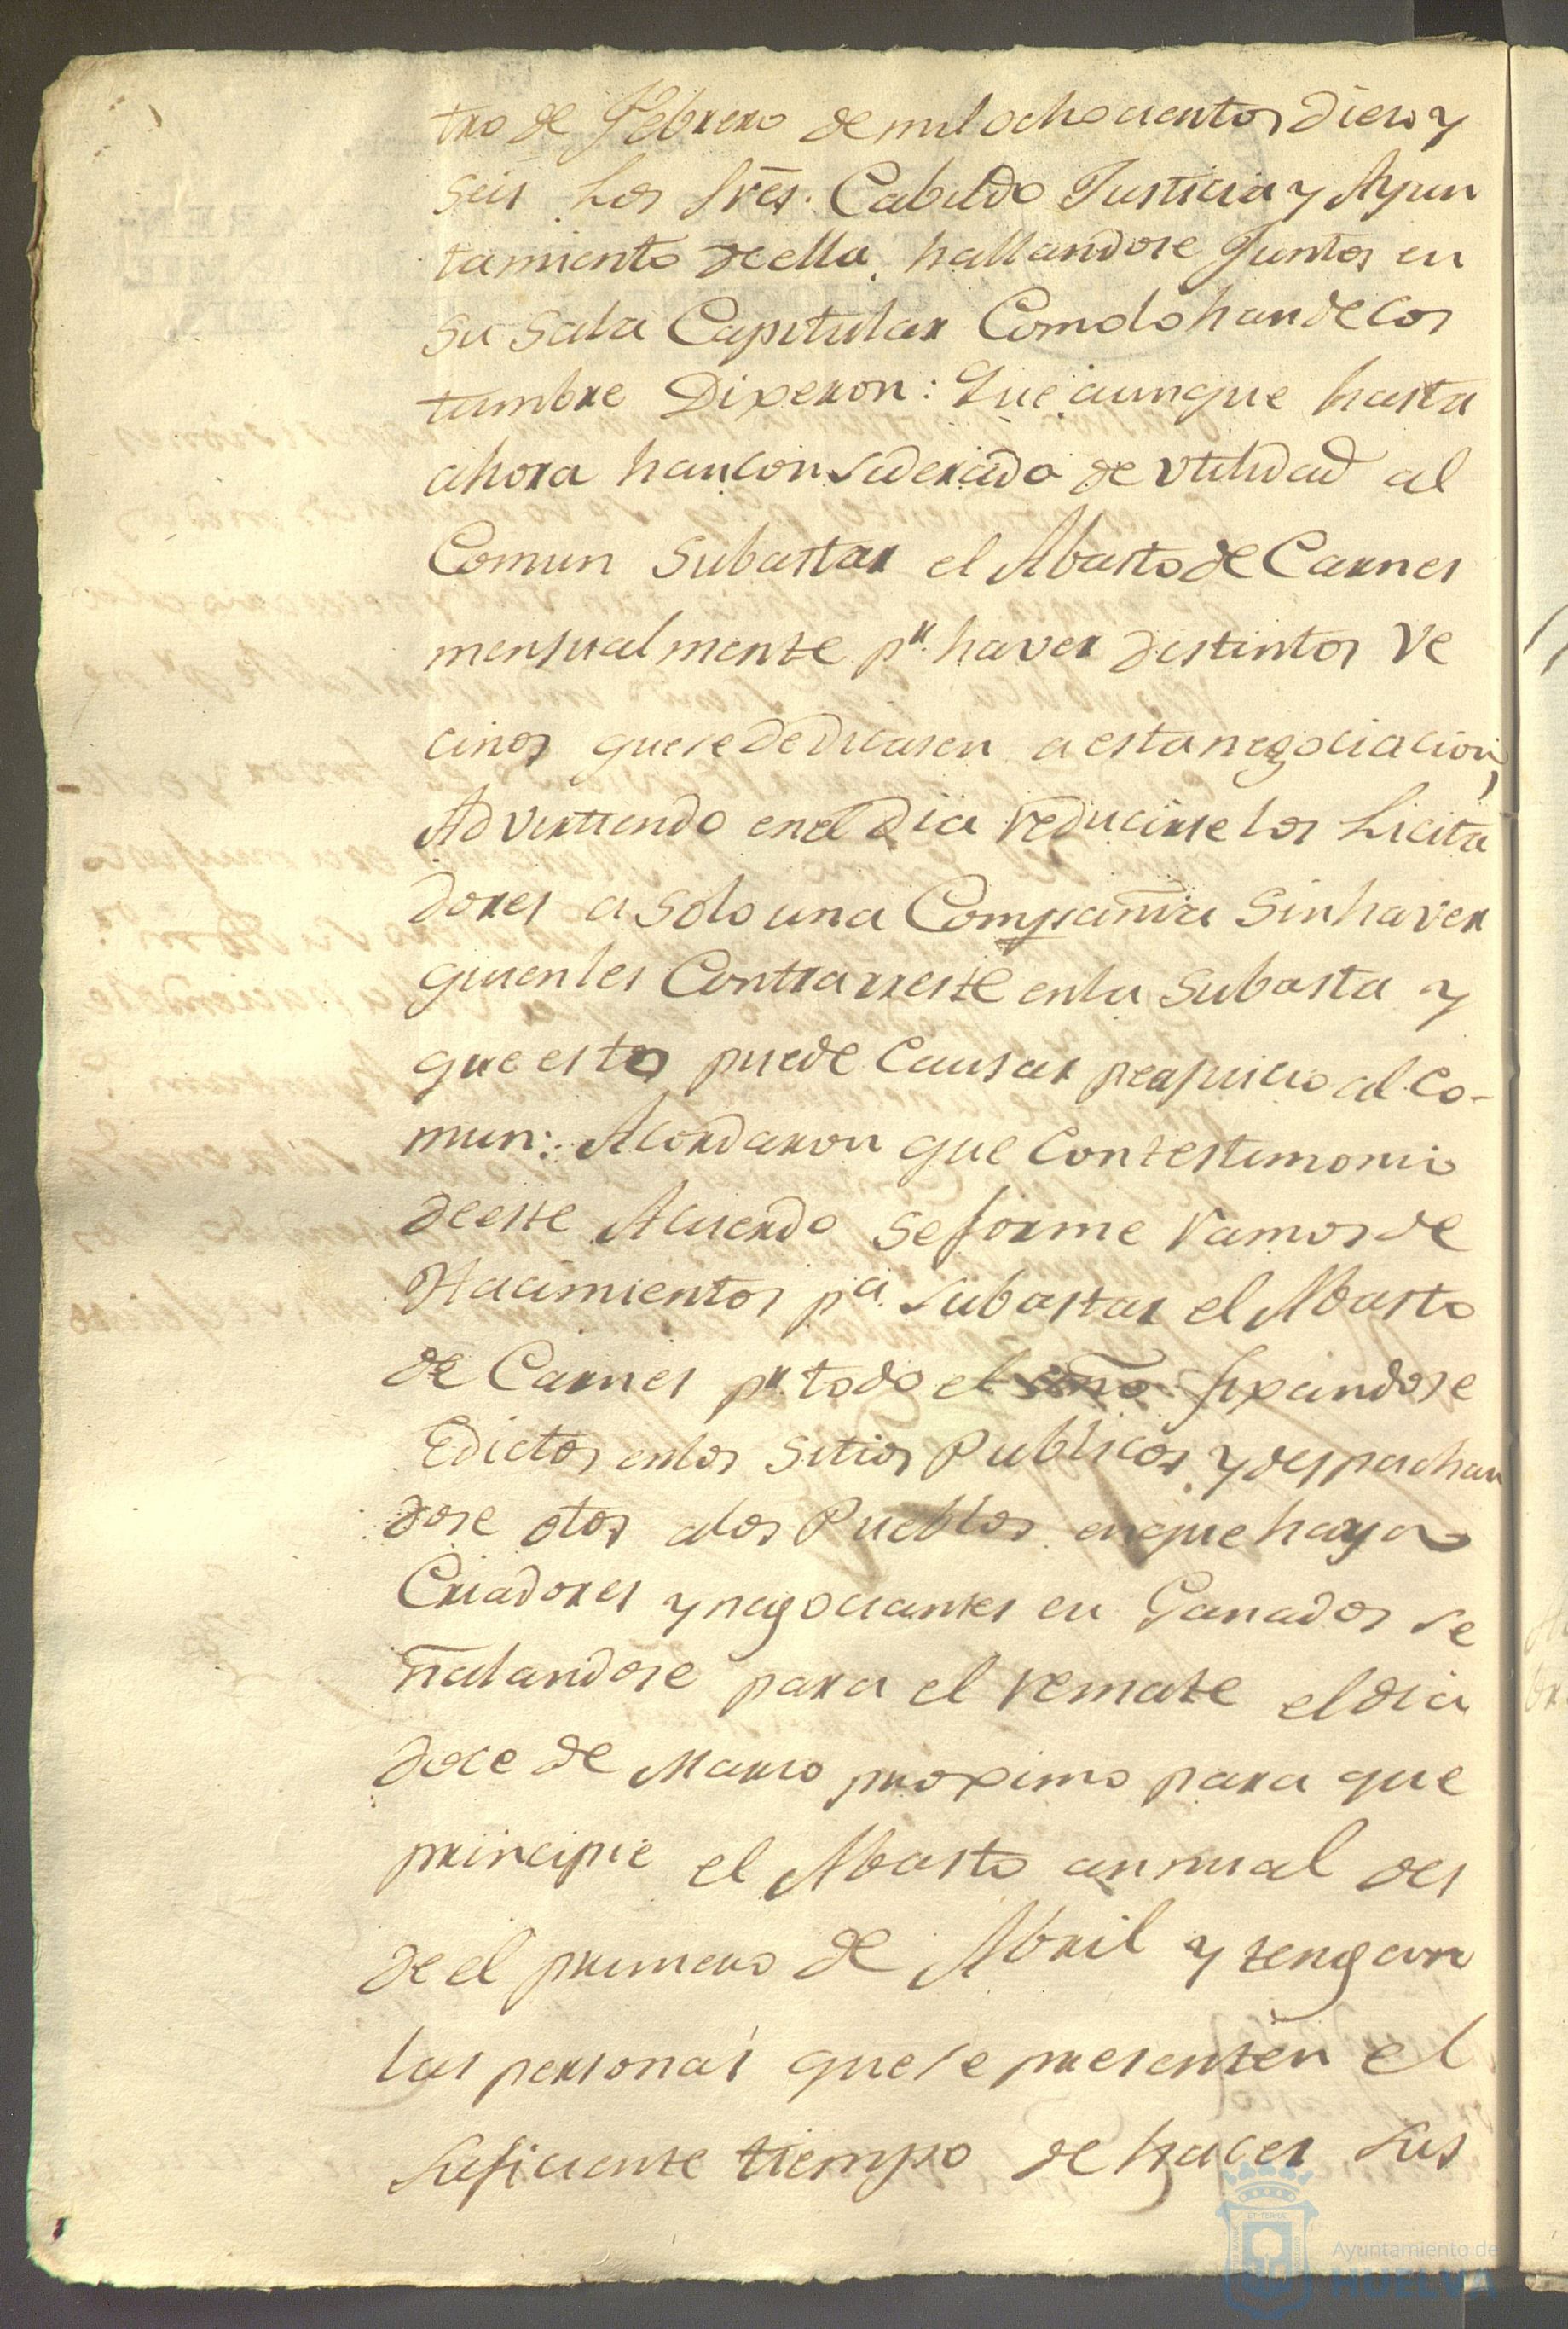 tro de Febrero de mil ochocientos dies y
seis Los Sres. Cabildo Justicia y Ayun
tamiento de ella hallandose Juntos en
su Sala Capitular Como lo han de cos
tumbre Dixeron: Que aunque hasta
ahora han considerado de vtilidad al
Comun Subastar el Abasto de Carnes
mensualmente pr. haver distintos Ve
cinos que se dedicasen a esta negociacion,
Advirtiendo en el Dia reducirse los Licita
dores a solo una Compañia Sin haver
quien les Contrarreste en la Subasta y
que esto puede Causar perjuicio al Co-
mun: Acordaron que Con testimonio
de este Acuerdo Se forme ramos de
Hacimientos pa. Subastar el Abasto
de Carnes pr. todo el año fixandose
Edictos en los Sitios Publicos, y despachan
dose otos a los Pueblos en que haya
Criadores y negociantes en Ganados se
ñalandose para el remate el dia
doce de Marzo proximo para que
principie el Abasto annual des
de el primero de Abril y tengan
las personas que se presenten el
Suficiente tiempo de hacer sus
Ayuntamiento de
HUELVA